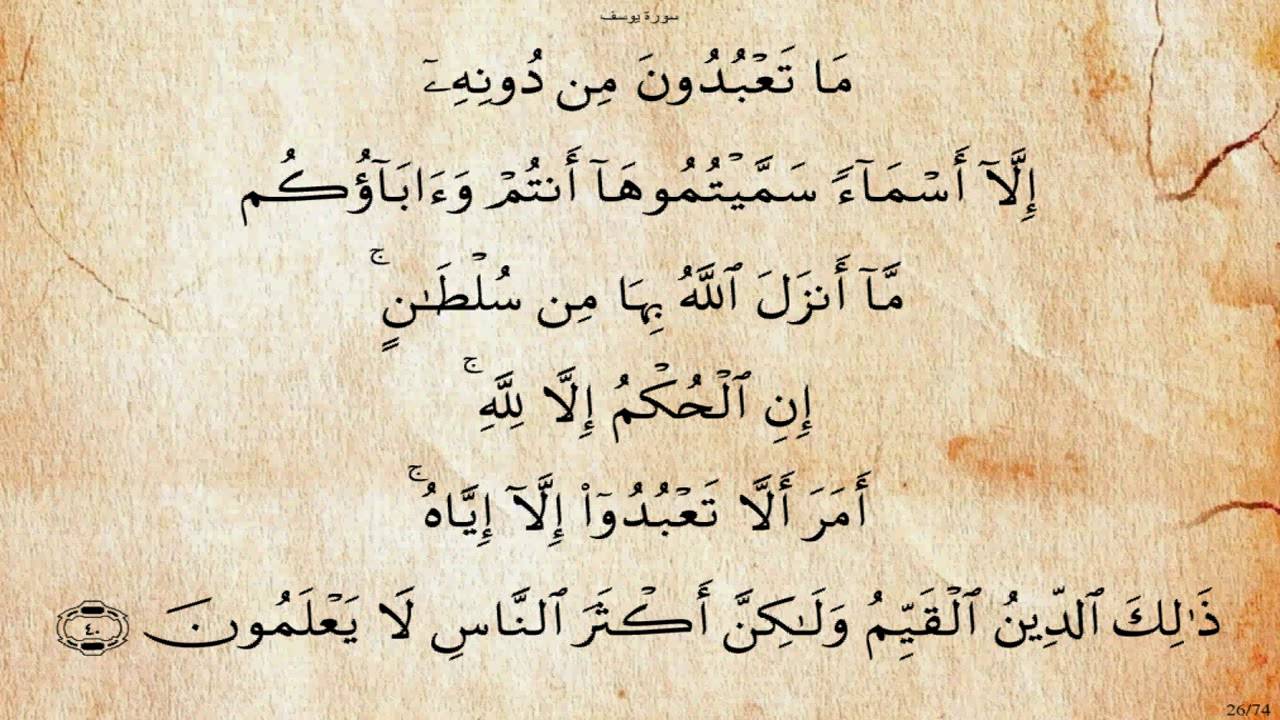 سورة يوسف
مَا تَعْبُدُونَ مِن دُونِهِۦٓ
إِلَّآ أَسْمَآءً سَمَّيْتُمُوهَآ أَنتُمْ وَءَابَآؤُكُم
مَّآ أَنزَلَ ٱللَّهُ بِهَا مِن سُلْطَـٰنٍ ۚ
إِنِ ٱلْحُكْمُ إِلَّا لِلَّهِ ۚ
أَمَرَ أَلَّا تَعْبُدُوٓا۟ إِلَّآ إِيَّاهُ ۚ
ذَٰلِكَ ٱلدِّينُ ٱلْقَيِّمُ وَلَـٰكِنَّ أَكْثَرَ ٱلنَّاسِ لَا يَعْلَمُونَ ٤٠
26/74